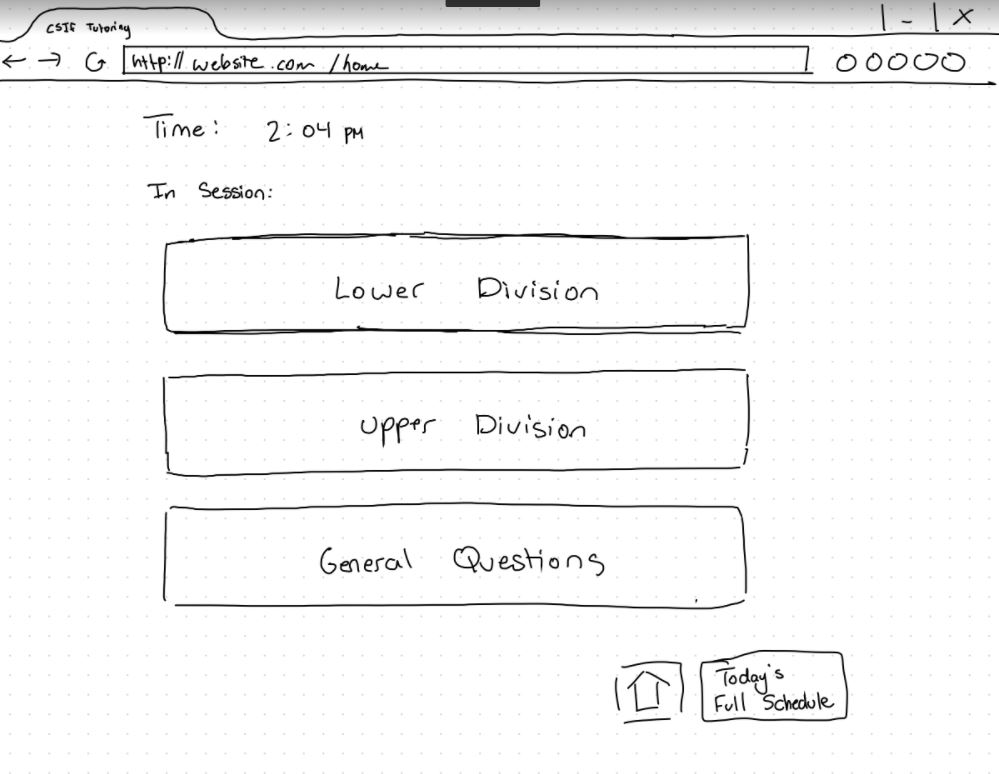 CSIF Tutoring
http://website.com/home
Time: 2:04 PM
In Session:
Lower Division
Upper Division
General Questions
Today's
Full Schedule